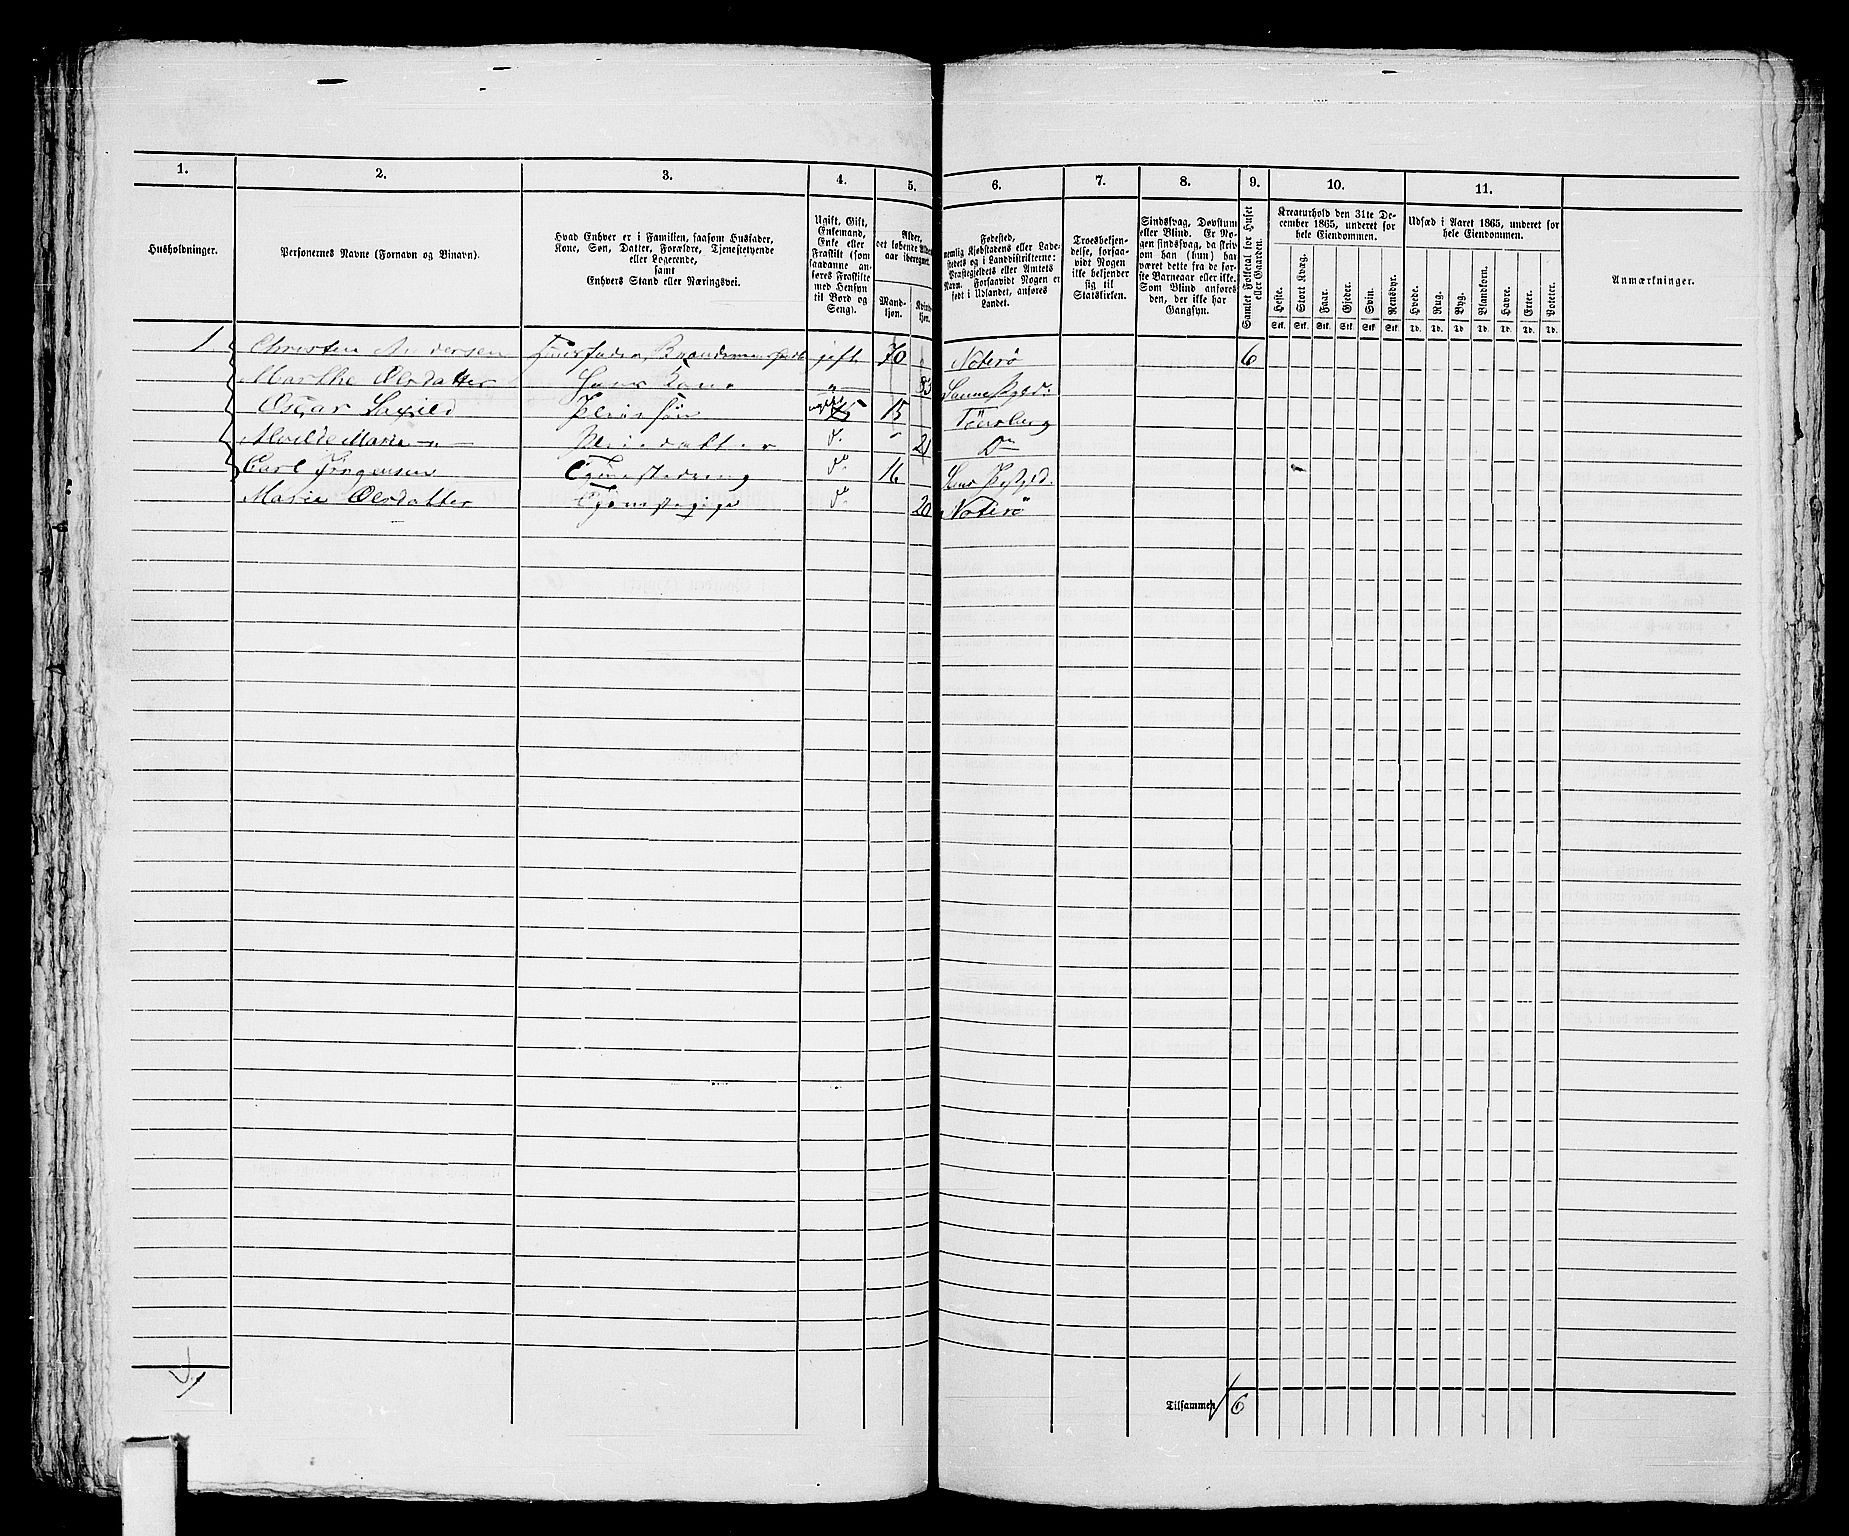 1. 2. 3. 4. 5. 6. 7. 8. 9. 10. 11.
Husholdninger.
Personernes Navne (Fornavn og Binavn).
Hvad Enhver er i Familien, saasom Husfader,
Kone, Søn, Datter, Forældre, Tjenestetyende
eller Logerende,
samt
Enhvers Stand eller Næringsvei.
Ugift, Gift,
Enkemand,
Enke eller
Fraskilt (som
saadanne an-
føres Fraskilte
med Hensyn
til Bord og
Seng).
Alder,
det løbende Alders-
aar iberegnet.
Mand-
kjøn.
Kvinde-
kjøn.
Fødested,
nemlig Kjøbstadens eller Lade-
stedets og i Landdistrikterne:
Præstegjeldets eller Amtets
Navn. Forsaavidt Nogen er
født i Udlandet, anføres
Landet.
Troesbekjen-
delse, forsaa-
vidt Nogen
ikke bekjender
sig til
Statskirken.
Sindssvag, Døvstum
eller Blind. Er No-
gen sindssvag, da skriv
om han (hun) har
været dette fra de før-
ste Barneaar eller ikke.
Som Blind anføres
den, der ikke har
Gangsyn.
Samlet Folketal for Huset
eller Gaarden.
Kreaturhold den 31te De-
cember 1865, underet for
hele Eiendommen.
Heste. Stort Kvæg. Faar. Gjeder. Svin. Rensdyr.
Stk. Stk. Stk. Stk. Stk. Stk.
Udsæd i Aaret 1865, underet for
hele Eiendommen.
Hvede. Rug. Byg. Blandkorn. Havre. Erter. Poteter.
Td. Td. Td. Td. Td. Td. Td.
Anmærkninger.
1 Christen Andersen Huusfader, gift 70 Noterø 6
Marthe Olsdatter Hans Kone " 53
Oscar Pleiesøn ugift 15 Tønsberg
Alvilde Marie —"— Pleiedatter do 21 Do
Carl Jørgensen do 16
Marie Olsdatter do 20 Noterø
Tilsammen 6